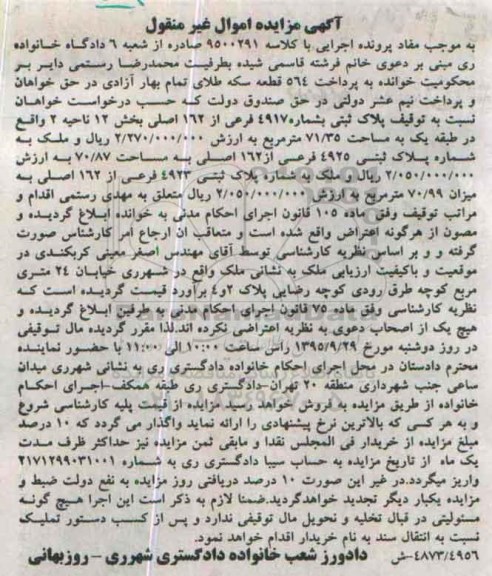 آگهی مزایده اموال غیر منقول
به موجب مفاد پرونده اجرایی با کلاسه ۹۵۰۰۲۹۱ صادره از شعبه ۶ دادگاه خانواده
ری مبنی بر دعوی خانم فرشته قاسمی شیده بطرفیت محمدرضا رستمی دایر بر
محکومیت خوانده به پرداخت ۵٦٤ قطعه سکه طلای تمام بهار آزادی در حق خواهان
و پرداخت نیم عشر دولتی در حق صندوق دولت که حسب درخواست خواهان
نسبت به توقیف پلاک ثبتی بشماره۴۹۱۷ فرعی از ۱۶۲ اصلی بخش ۱۲ ناحیه ۲ واقع
در طبقه یک به مساحت ۷۱/۳۵ مترمربع به ارزش ۲/۲۷۰/۰۰۰/۰۰۰ ریال و ملک به
شماره پلاک ثبتی ۴۹۲۵ فرعی از۱۶۲ اصلی به مساحت ۷۰/۸۷ به ارزش
۲/۰۵۰/۰۰۰/۰۰۰ ریال و ملک به شماره پلاک ثبتی ۴۹۲۳ فرعی از ۱۶۲ اصلی به
میزان ۷۰/۹۹ مترمربع به ارزش ۲/۰۵۰/۰۰۰/۰۰۰ ریال متعلق به مهدی رستمی اقدام و
مراتب توقیف وفق ماده ۱۰۵ قانون اجرای احکام مدنی به خوانده ابلاغ گردیده و
مصون از هرگونه اعتراض واقع شده است و متعاقب آن ارجاع امر کارشناس صورت
گرفته و و بر اساس نظریه کارشناسی توسط آقای مهندس اصغر معینی کربکندی در
موقعیت و باکیفیت ارزیابی ملک به نشانی ملک واقع در شهرری خیابان ۲۴ متری
مربع کوچه طرق رودی کوچه رضایی پلاک ۲و۴ برآورد قیمت گردیده است که
نظریه کارشناسی وفق ماده ۷۵ قانون اجرای احکام مدنی به طرفین ابلاغ گردیده و
هیچ یک از اصحاب دعوی به نظریه اعتراضی نکرده اند.لذا مقرر گردیده مال توقیفی
در روز دوشنبه مورخ ۱۳۹۵/۹/۲۹ راس ساعت ۱۰:۰۰ الی ۱۱:۰۰ با حضور نماینده
محترم دادستان در محل اجرای احکام خانواده دادگستری ری به نشانی شهرری میدان
ساعی جنب شهرداری منطقه ۲۰ تهران-دادگستری ری طبقه همکف-اجرای احکام
خانواده از طریق مزایده به فروش خواهد رسید مزایده از قیمت پلیه کارشناسی شروع
و به هر کسی که بالاترین نرخ پیشنهادی را ارائه نماید واگذار می گردد که ۱۰ درصد
مبلغ مزایده از خریدار فی المجلس نقدا و مابقی ثمن مزایده نیز حداکثر ظرف مدت
یک ماه از تاریخ مزایده به حساب سیبا دادگستری ری به شماره ۲۱۷۱۲۹۹۰۳۱۰۰۱
واریز میگردد.در غیر این صورت ۱۰ درصد دریافتی روز مزایده به نفع دولت ضبط و
مزایده یکبار دیگر تجدید خواهدگردید.ضمنا لازم به ذکر است این اجرا هیچ گونه
مسئولیتی در قبال تخلیه و تحویل مال توقیفی ندارد و پس از کسب دستور تملیک
نسبت به انتقال سند به نام خریدار اقدام خواهد نمود.
۴۸۷۳/۴۹۵۶-ش دادورز شعب خانواده دادگستری شهرری - روزبهانی